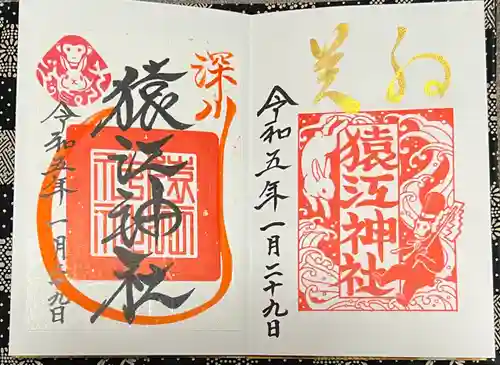 幻
美
猿江神社
令和五年一月二十九日
深川
猿江神社
猿江神社
令和五年一月二十九日